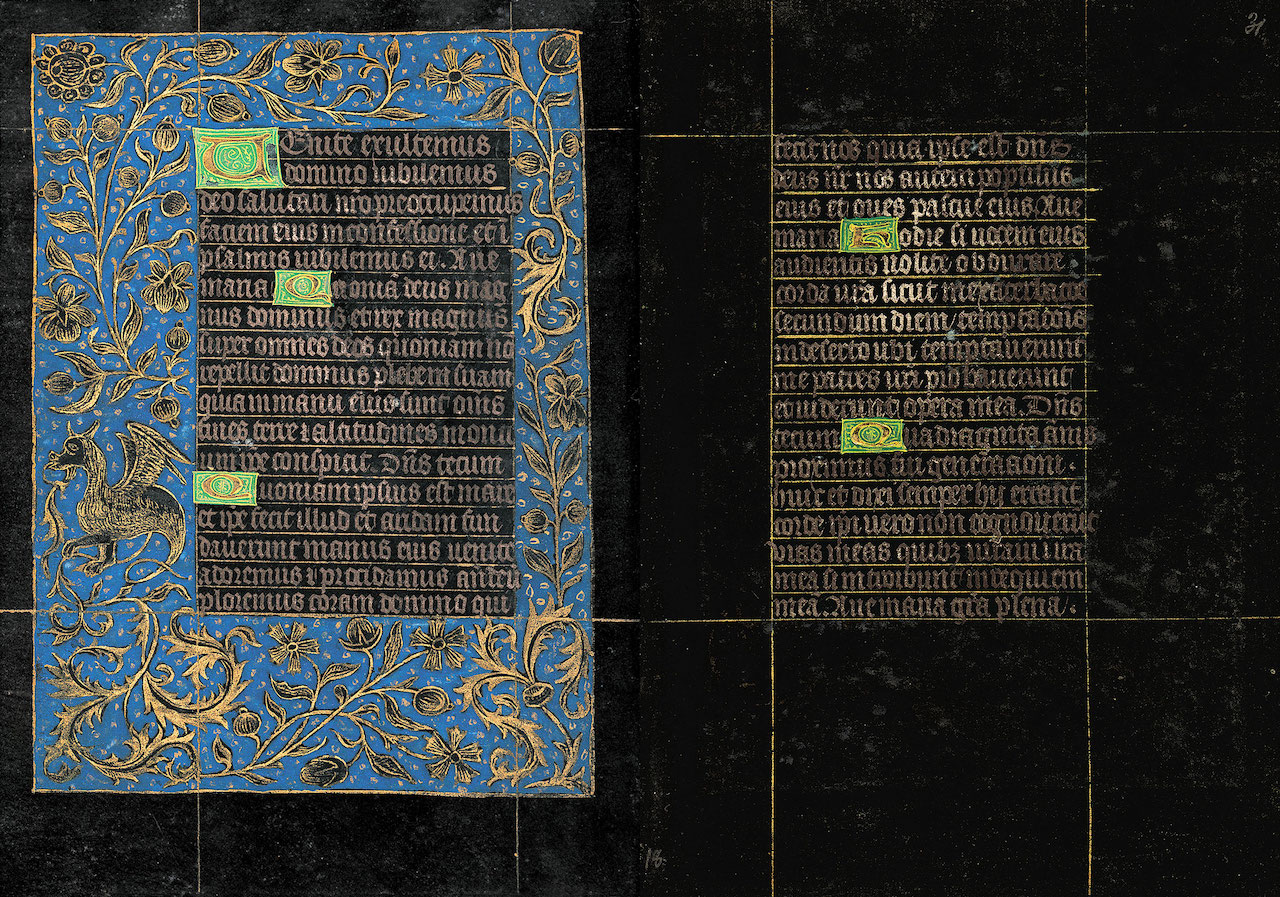 Uenite exultemus
domino iubilemus
deo salutari nro preoccupemus
faciem eius in confessione et i
psalmis iubilemus ei. Aue
maria Quoniā deus mag
nus dominus et rex magnus
super omnes deos quoniam nō
repellit dominus plebem suam
quia in manu eius sunt oms
fines terre ⁊ altitudines monti
um ipe conspicit Dñs tecum
Quoniam ipsius est mare
et ipe fecit illud et aridam fun
dauerunt manus eius uenite
adoremus ⁊ procidamus ante deū
ploremus coram domino qui
fecit nos quia ipse est dns
deus nr nos autem populus
eius et oues pascue eius. Aue
maria Hodie si uocem eius
audieritis nolite obdurare
corda ura sicut in exacerbacōe
secundum diem temptacōis
in deserto ubi temptauerunt
me patres uri probauerunt
et uiderunt opera mea. Dñs
tecum Quadraginta annis
proximus fui generationi
huic et dixi semper hij errant
corde ipi uero non cognouerūt
uias meas quibz iuraui in ira
mea si introibunt in requiem
meā. Aue maria grā plena.
18.
21.